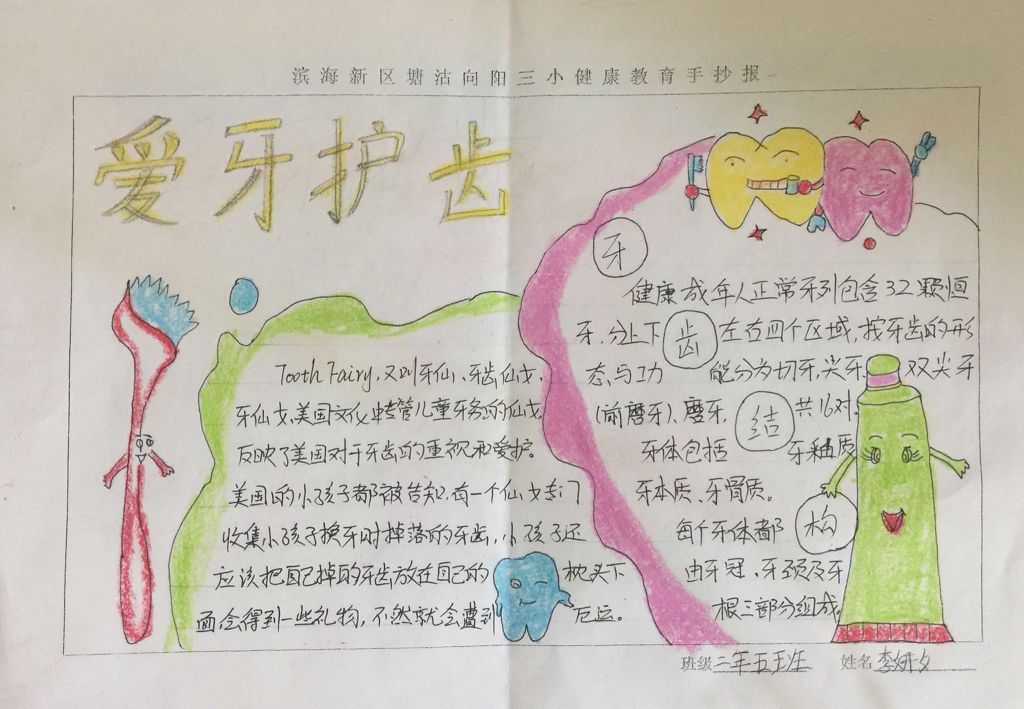 滨海新区塘沽向阳三小健康教育手抄报
爱牙护齿
Tooth Fairy,又叫牙仙、牙齿仙女、
牙仙女,美国文化中专管儿童牙务的仙女,
反映了美国对于牙齿的重视和爱护。
美国的小孩子都被告知,有一个仙女专门
收集小孩子换牙时掉落的牙齿,小孩子还
应该把自己掉的牙齿放在自己的枕头下
面会得到一些礼物,不然就会遭到厄运。
牙
齿
结
构
健康成年人正常牙列包含32颗恒
牙,分上下左右四个区域,按牙齿的形
态与功能分为切牙,尖牙,双尖牙
(前磨牙)、磨牙,共16对。
牙体包括牙釉质
牙本质、牙骨质。
每个牙体都
由牙冠、牙颈及牙
根三部分组成。
班级 二年五班 姓名 李妍文